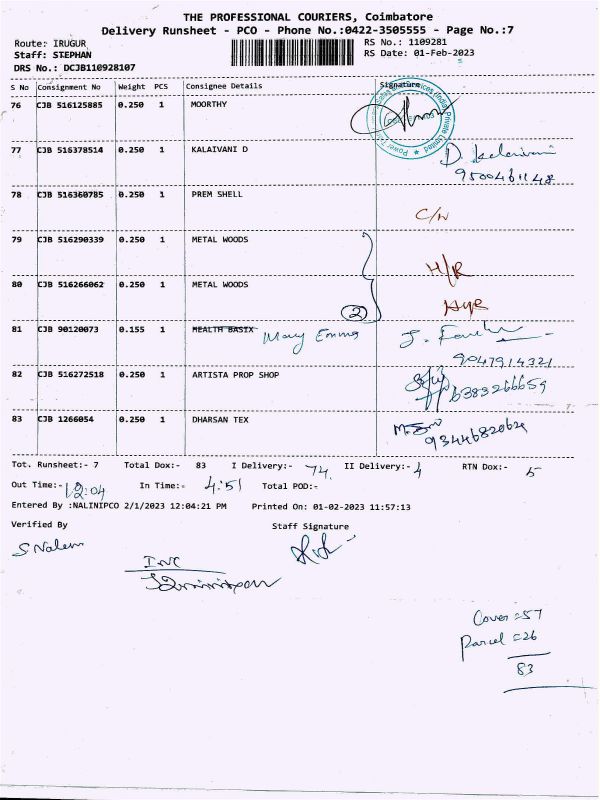 THE PROFESSIONAL COURIERS, Coimbatore
Delivery Runsheet - PCO - Phone No.:0422-3505555 - Page No.:7
Route: IRUGUR RS No.: 1109281
Staff: STEPHAN RS Date: 01-Feb-2023
DRS No.: DCJB110928107
S No Consignment No Weight PCS Consignee Details Signature
76 CJB 516125885 0.250 1 MOORTHY
77 CJB 516378514 0.250 1 KALAIVANI D D. Kalaivani
9500461148
78 CJB 516360785 0.250 1 PREM SHELL
C/N
79 CJB 516290339 0.250 1 METAL WOODS
H/R
80 CJB 516266062 0.250 1 METAL WOODS
2
81 CJB 90120073 0.155 1 HEALTH BASIX Mary Emma
9047914321
82 CJB 516272518 0.250 1 ARTISTA PROP SHOP
6383266659
83 CJB 1266054 0.250 1 DHARSAN TEX
Tot. Runsheet:- 7 Total Dox:- 83 I Delivery:- 74 II Delivery:- 4 RTN Dox:- 5
Out Time:- 12:04 In Time:- 4:51 Total POD:-
Entered By :NALINIPCO 2/1/2023 12:04:21 PM Printed On: 01-02-2023 11:57:13
Verified By Staff Signature
Cover = 57
Parcel = 26
83